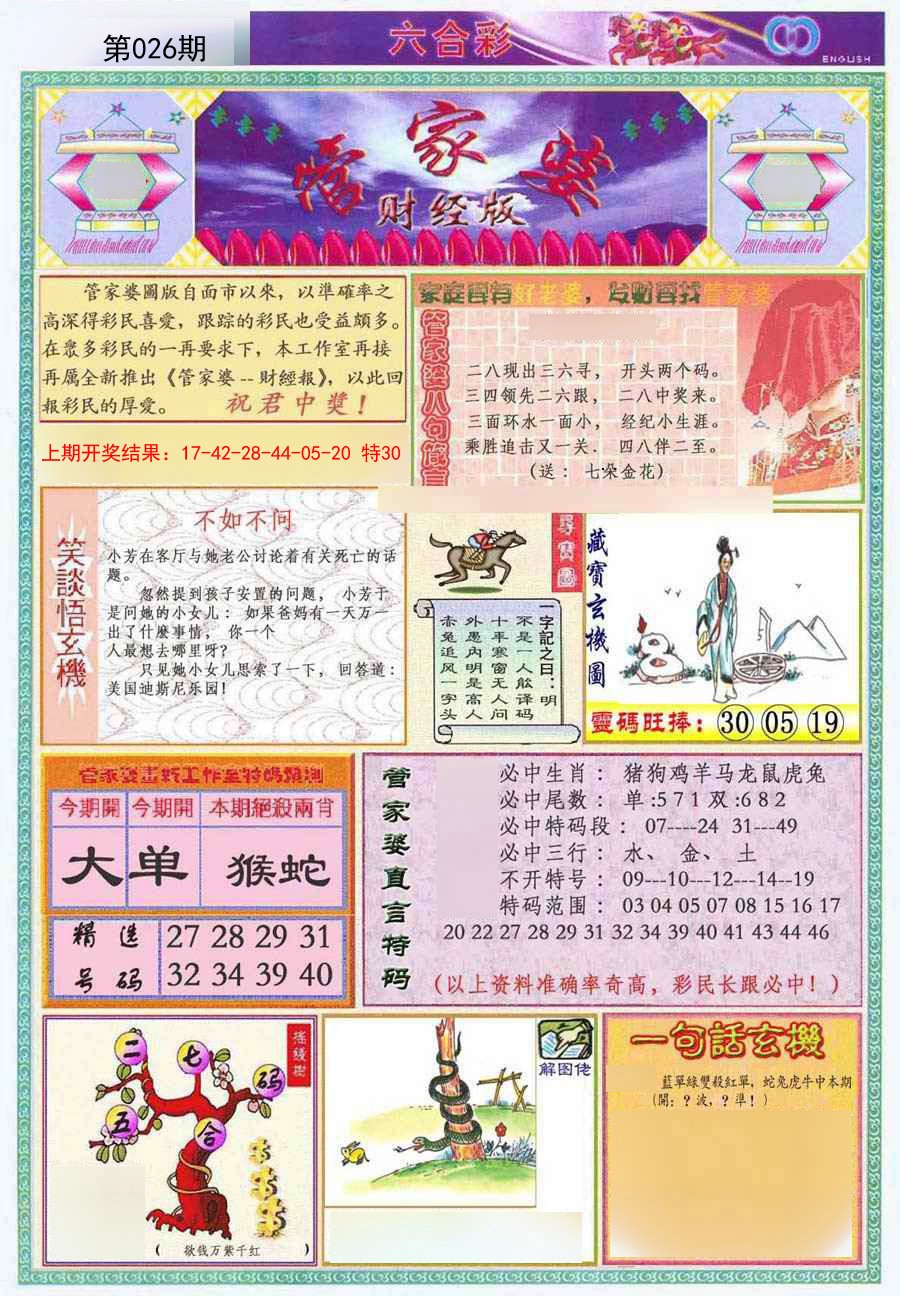 第026期
六合彩
ENGLISH
管家婆
财经版
管家婆圖版自面市以來，以準確率之
高深得彩民喜愛，跟踪的彩民也受益頗多。
在眾多彩民的一再要求下，本工作室再接
再厲全新推出《管家婆--財經報》，以此回
報彩民的厚愛。 祝君中獎！
上期开奖结果：17-42-28-44-05-20 特30
家庭要有好老婆，发财要找管家婆
管家婆八句箴言
二八现出三六寻， 开头两个码。
三四领先二六跟， 二八中奖来。
三面环水一面小， 经纪小生涯。
乘胜追击又一关． 四八伴二至。
（送： 七朵金花）
笑談悟玄機
不如不问
小芳在客厅与她老公讨论着有关死亡的话
题。
忽然提到孩子安置的问题， 小芳于
是问她的小女儿： 如果爸妈有一天万一
出了什麼事情， 你一个
人最想去哪里呀？
只见她小女儿思索了一下， 回答道：
美国迪斯尼乐园！
尋寶圖
一字記之曰：明
不是一人能译码
十年寒窗无人问
外愚内明是高人
赤兔追风一字头
藏寶玄機圖
靈碼旺捧：30 05 19
管家婆畫籤工作室特碼預測
今期開 今期開 本期絕殺兩肖
大 单 猴蛇
精选号码
27 28 29 31
32 34 39 40
管家婆直言特码
必中生肖： 猪狗鸡羊马龙鼠虎兔
必中尾数： 单:5 7 1 双:6 8 2
必中特码段： 07----24 31---49
必中三行： 水、 金、 土
不开特号： 09---10---12---14--19
特码范围： 03 04 05 07 08 15 16 17
20 22 27 28 29 31 32 34 39 40 41 43 44 46
（以上资料准确率奇高，彩民长跟必中！）
摇錢樹
二
七
码
五
合
（ 欲钱万紫千红 ）
解图佬
一句話玄機
藍單綠雙殺紅單，蛇兔虎牛中本期
（開：？波，？準！）